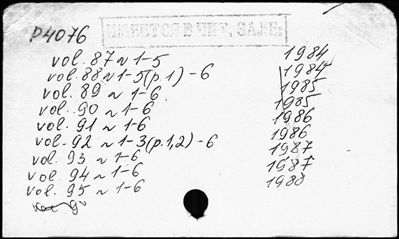 P4076
ИМЕЕТСЯ В ЧИТ. ЗАЛЕ
vol. 87 ~ 1-5 1984
vol. 88 ~ 1-5 (p.1) - 6 1984
vol. 89 ~ 1-6 1985
vol. 90 ~ 1-6 1985
vol. 91 ~ 1-6 1986
vol. 92 ~ 1-3 (p.1,2) - 6 1986
vol. 93 ~ 1-6 1987
vol. 94 ~ 1-6 1987
vol. 95 ~ 1-6 1988